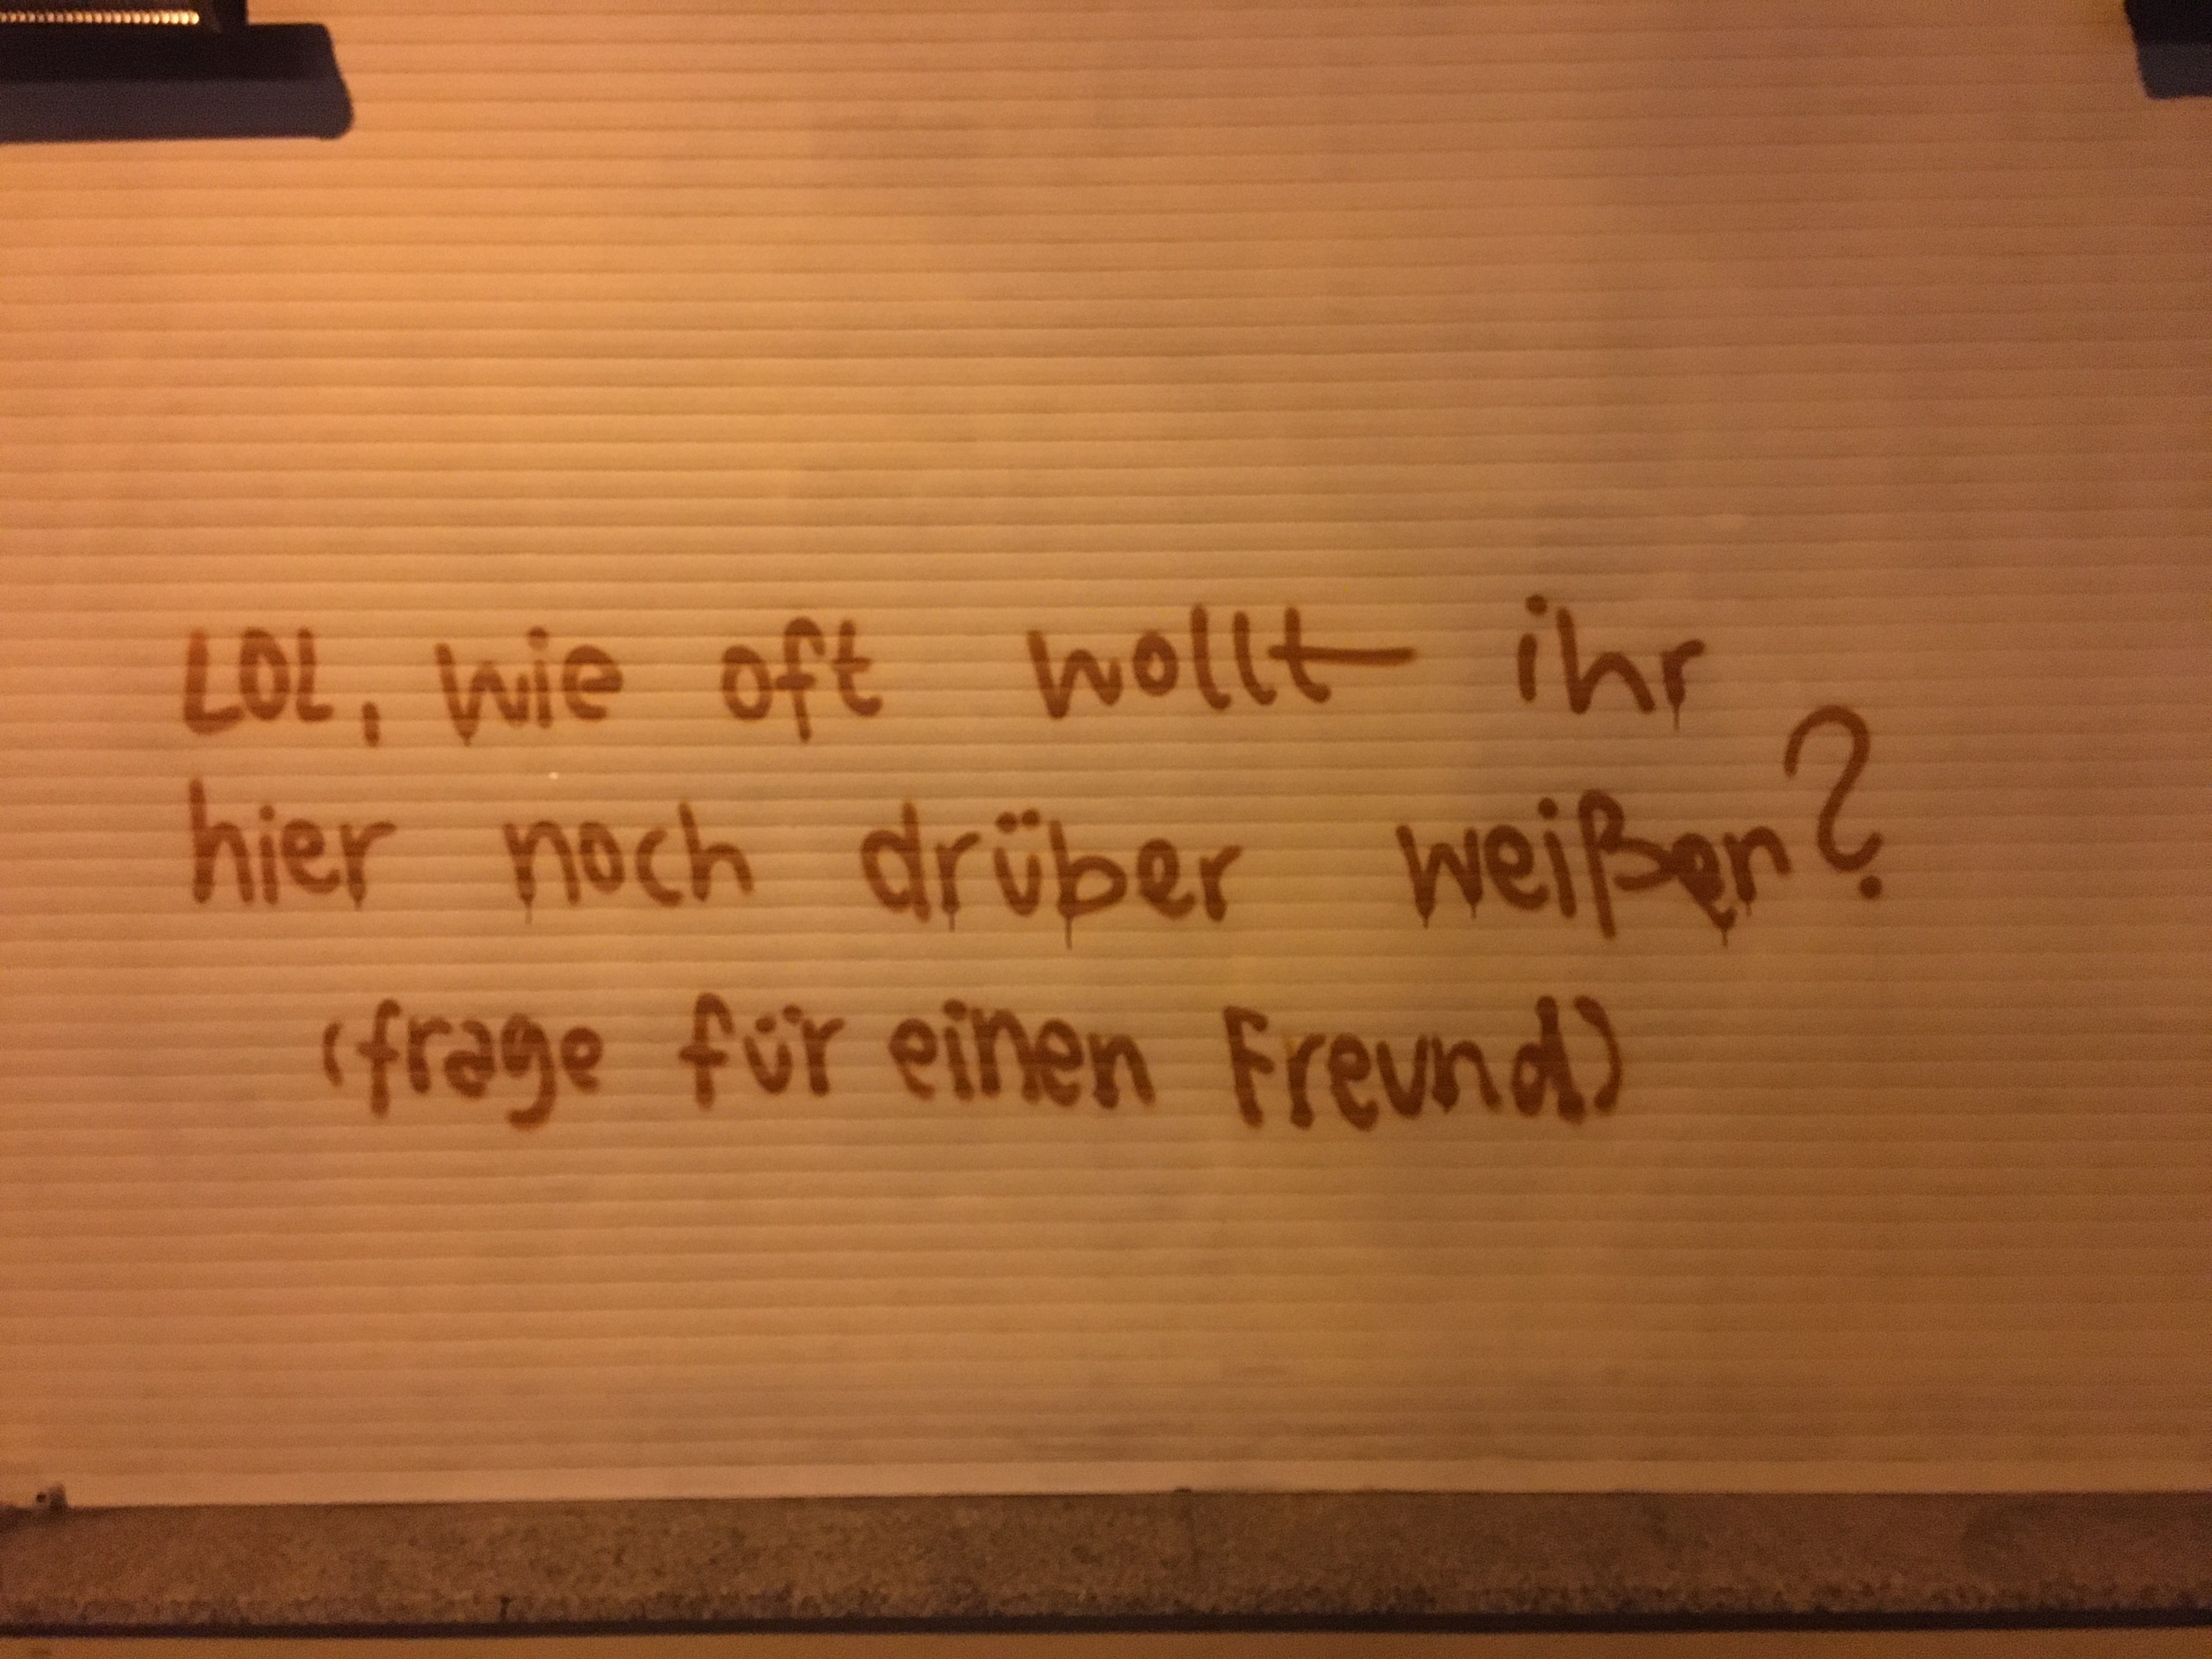 LOL, wie oft wollt ihr
hier noch drüber weißen?
(frage für einen Freund)